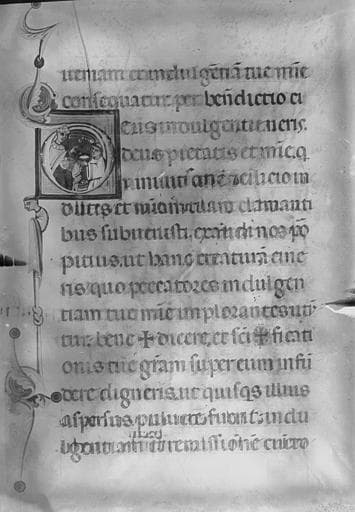 ueniam et indulgētiā tue mīe
consequatur. per benēdictio cī
eus indulgentie. ueris.
deus pietatis et mīe. q
niniuitis in cinere & cilicio in
dutis et
bus subuenisti. exaudi nos p̄o
pitius. ut hanc creaturā cine
ris. quo peccatores indulgen
tiam tue mīe implorantes uti
tur. bene ✠ dicere. et scī ✠ ficati
onis tue grām super eum infū
dere digneris. ut quisq̄s illius
aspersus puluere fuerit. indu
lgentiam et remissionē